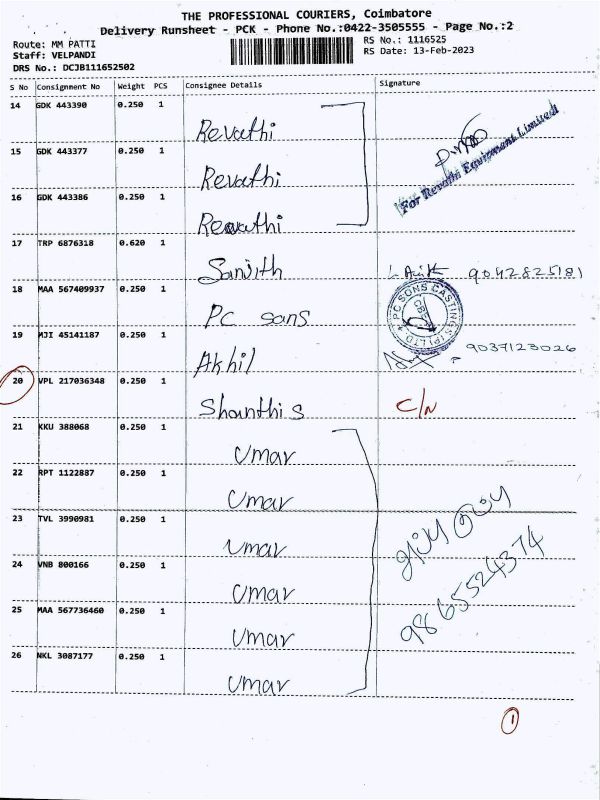 THE PROFESSIONAL COURIERS, Coimbatore
Delivery Runsheet - PCK - Phone No.:0422-3505555 - Page No.:2
Route: MM PATTI
RS No.: 1116525
Staff: VELPANDI
RS Date: 13-Feb-2023
DRS No.: DCJB111652502
S No Consignment No Weight PCS Consignee Details Signature
14 GDK 443390 0.250 1 Revathi
15 GDK 443377 0.250 1 Revathi
For Revathi Equipment Limited
16 GDK 443386 0.250 1 Revathi
17 TRP 6876318 0.620 1 Sanjith 9042825181
18 MAA 567409937 0.250 1 Pc sons
PC SONS CASTINGS (P) LTD
19 MJI 45141187 0.250 1 Akhil 9037123026
20 VPL 217036348 0.250 1 Shanthi s C/N
21 KKU 388068 0.250 1 Umar
22 RPT 1122887 0.250 1 Umar
23 TVL 3990981 0.250 1 Umar
24 VNB 800166 0.250 1 Umar
9865524374
25 MAA 567736460 0.250 1 Umar
26 NKL 3087177 0.250 1 Umar
1